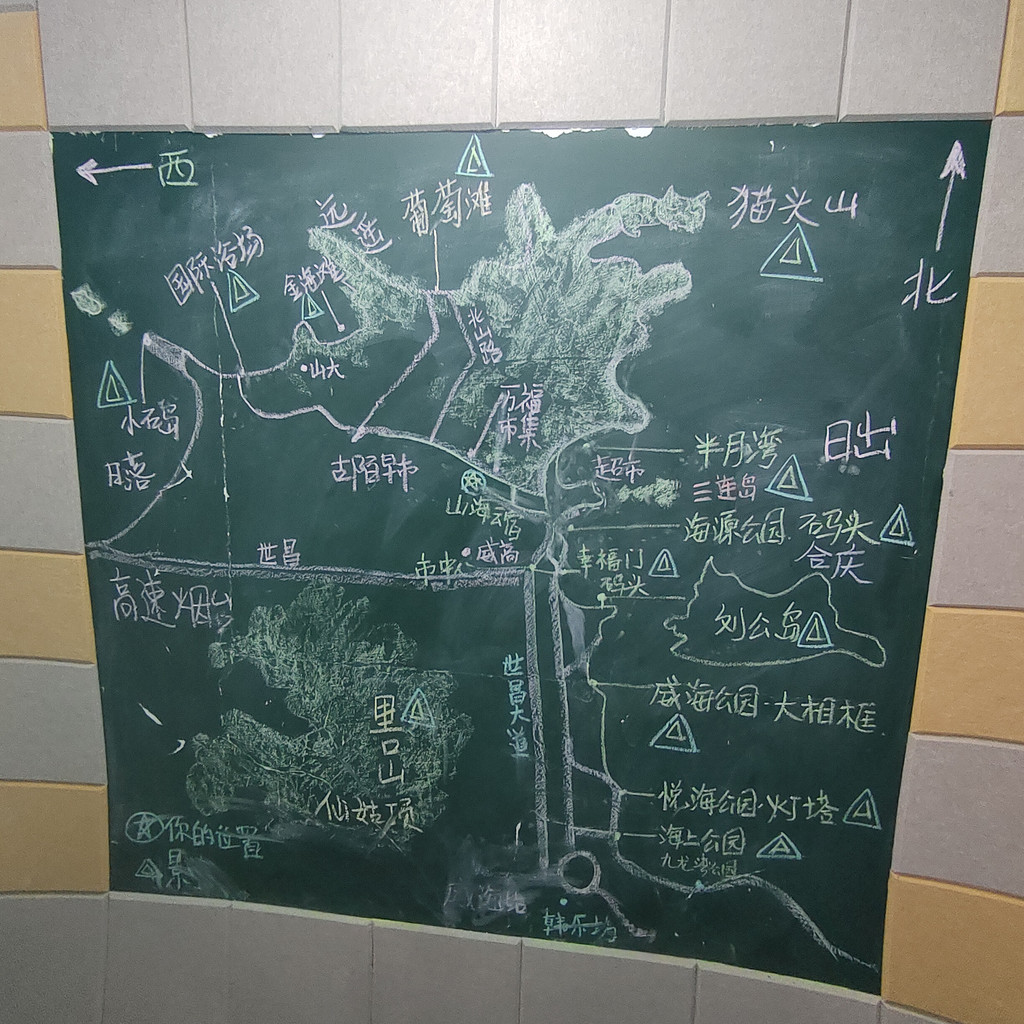 西
葡萄滩
猫头山
远遥
国际浴场
金海滩
北
北山路
山大
小石岛
万福
市集
日出
日落
古陌早市
超市
半月湾
三连岛
山海云宿
海源公园·石码头
合庆
世昌
市中心
威高
幸福门
码头
高速 烟台
刘公岛
世昌大道
里口山
威海公园·大相框
仙姑顶
悦海公园·灯塔
你的位置
海上公园
景
九龙湾公园
韩乐坊